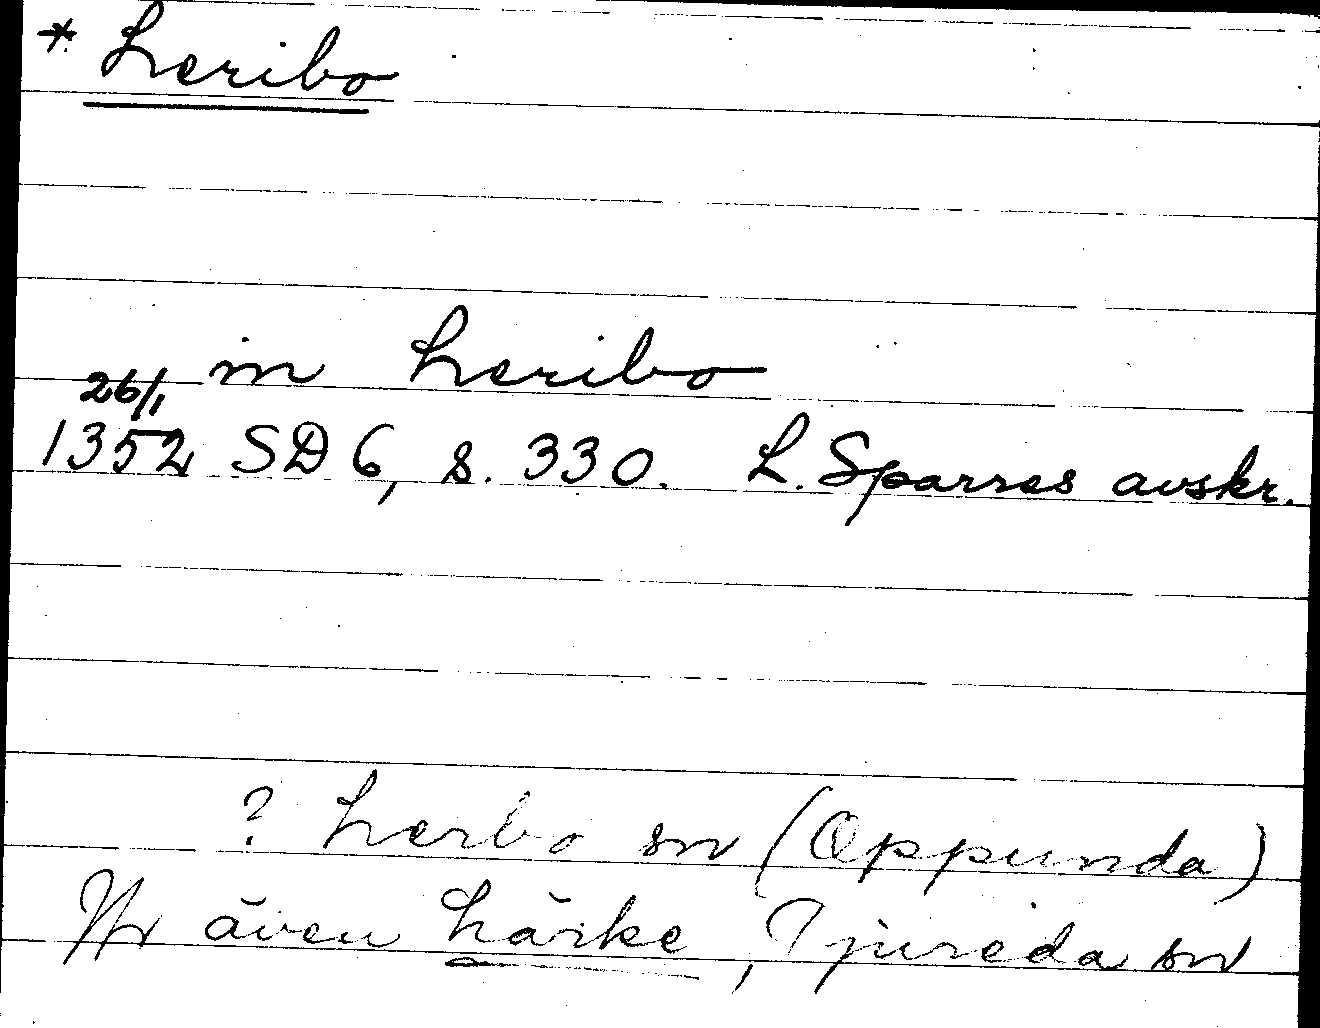 * Leribo
in Leribo
26/1
1352 SD 6, s. 330. L. Sparres avskr.
? Lerbo sn (Oppunda)
Jfr även Lärke, Tjureda sn